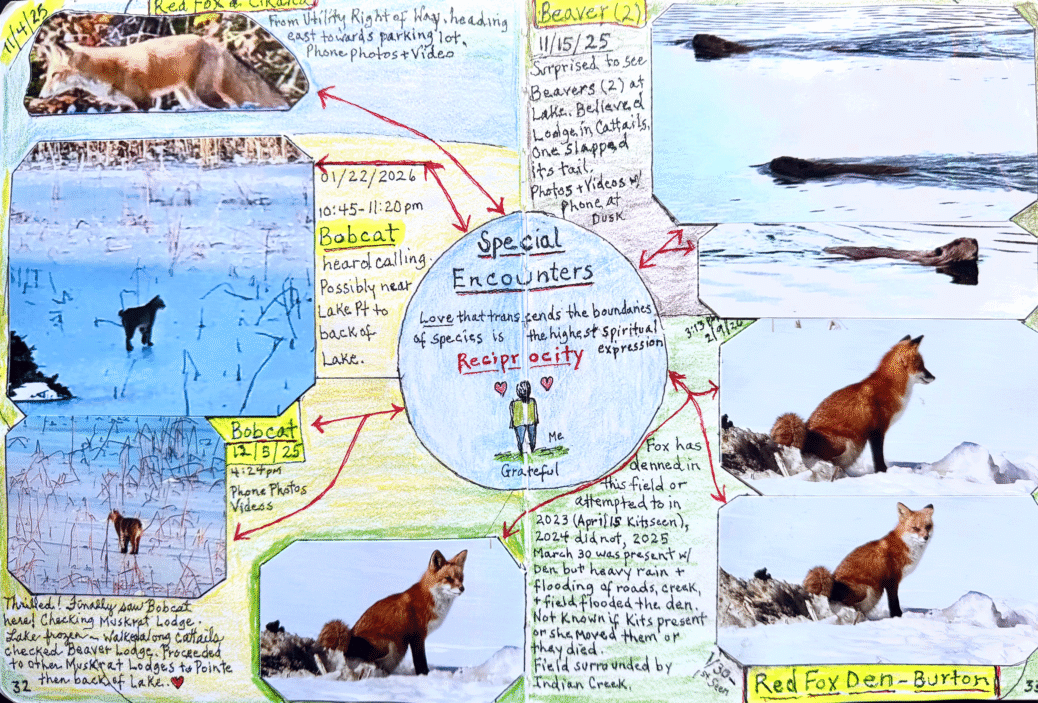 11/4/25
Red Fox @
From Utility Right of Way, heading
east towards parking lot.
Phone Photos + Video
01/22/2026
10:45-11:20pm
Bobcat
heard calling.
Possibly near
Lake Pt to
back of
Lake.
Bobcat
12/5/25
4:24pm
Phone Photos
Videos
Thrilled! Finally saw Bobcat
here! Checking Muskrat Lodge.
Lake frozen - Walked along Cattails
checked Beaver Lodge. Proceeded
to other Muskrat Lodges to Pointe
then back of Lake.
32
Special
Encounters
Love that transcends the boundaries
of species is the highest spiritual
expression
Reciprocity
Me
Grateful
Beaver (2)
11/15/25
Surprised to see
Beavers (2) at
Lake. Believed
Lodge in Cattails.
One slapped
its tail.
Photos + Videos w/
Phone at
Dusk
3:13 pm
2/9/26
Fox has
denned in
this field or
attempted to in
2023 (April 15 Kit seen),
2024 did not, 2025
March 30 was present w/
Den but heavy rain +
flooding of roads, creek,
+ field flooded the den.
Not Known if Kits present
or she moved them or
they died.
Field surrounded by
Indian Creek.
1/30-
1st Seen
Red Fox Den - Burton
33